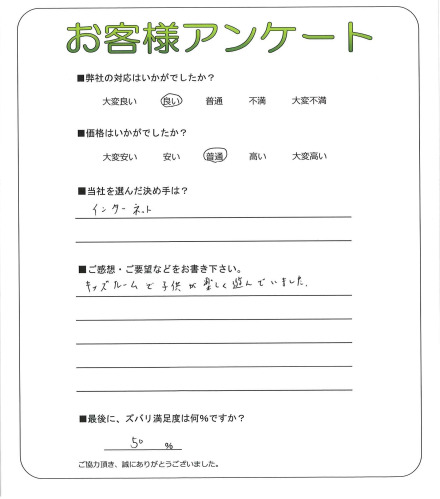 お客様アンケート
■弊社の対応はいかがでしたか？
大変良い 良い 普通 不満 大変不満
■価格はいかがでしたか？
大変安い 安い 普通 高い 大変高い
■当社を選んだ決め手は？
インターネット
■ご感想・ご要望などをお書き下さい。
キッズルームで子供が楽しく遊んでいました.
■最後に、ズバリ満足度は何％ですか？
50 ％
ご協力頂き、誠にありがとうございました。